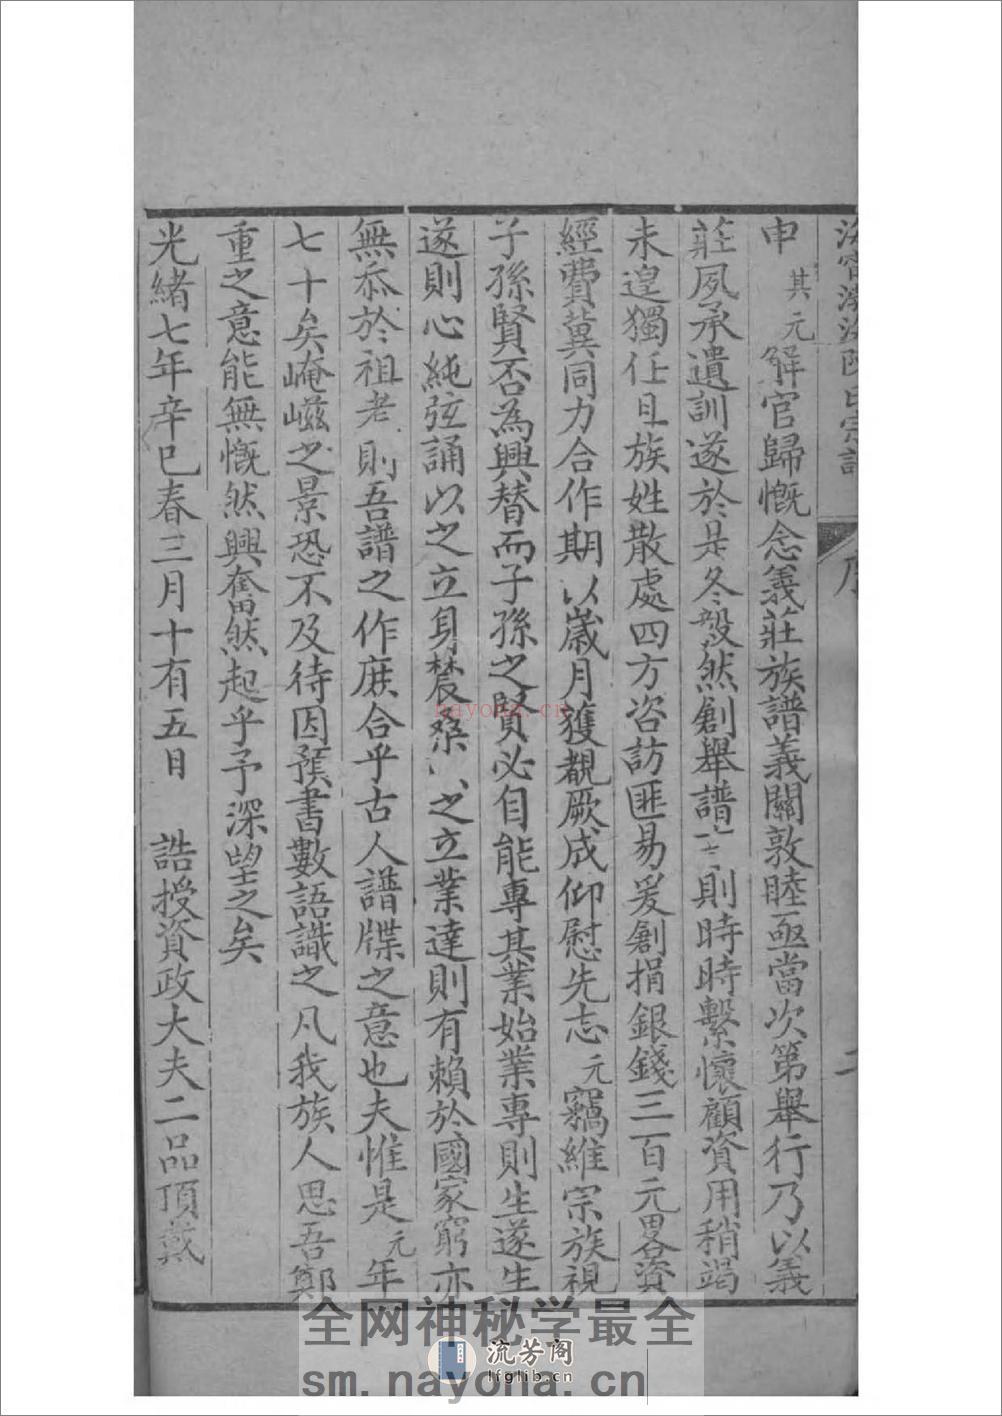 申其元解官歸慨念義莊族譜義關敦睦亟當次第舉行乃以義
莊夙承遺訓遂於是冬毅然創舉譜則時時繫懷顧資用稍竭
未遑獨任且族姓散處四方咨訪匪易爰創捐銀錢三百元畧資
經費冀同力合作期以歲月獲覩厥成仰慰先志元竊維宗族視
子孫賢否為興替而子孫之賢必自能專其業始業專則生遂生
遂則心純弦誦以之立身農桑以之立業達則有賴於國家窮亦
無忝於祖老則吾譜之作庶合乎古人譜牒之意也夫惟是元年
七十矣崦嵫之景恐不及待因預書數語識之凡我族人思吾鄭
重之意能無慨然興奮然起乎予深望之矣
光緒七年辛巳春三月十有五日 誥授資政大夫二品頂戴
nayona.cn
全网神秘学最全
流芳阁
lfglib.cn
sm.nayona.cn